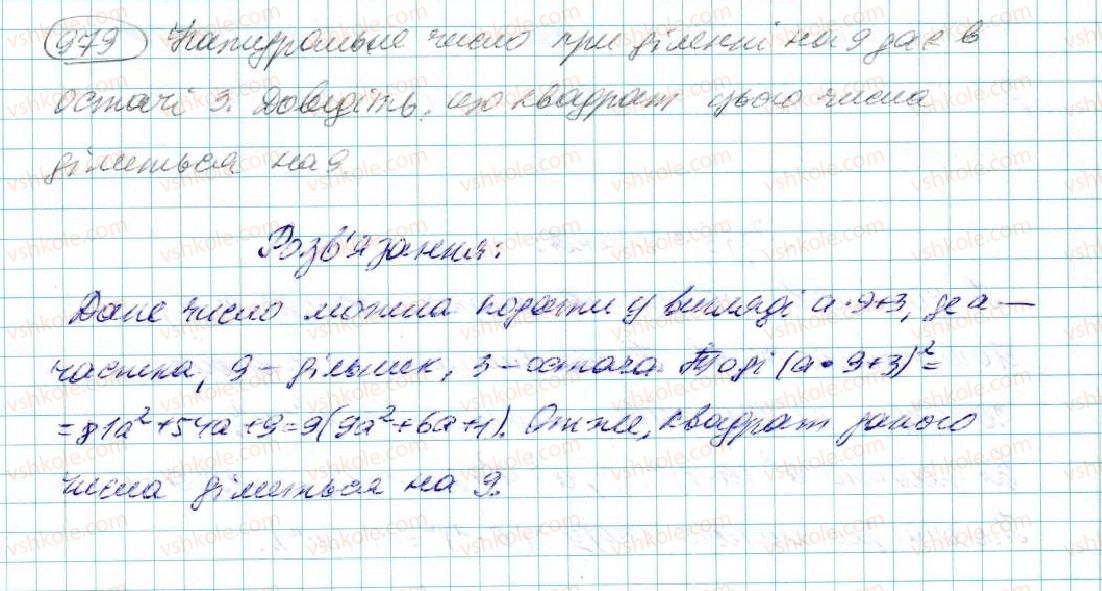 979 Натуральне число при діленні на 9 дає в
остачі 3. Доведіть, що квадрат цього числа
ділиться на 9.
Розв'язання:
Дане число можна подати у вигляді a·9+3, де a —
частка, 9 – дільник, 3 – остача. Тоді (a·9+3)²=
=81a²+54a+9=9(9a²+6a+1). Отже, квадрат даного
числа ділиться на 9.